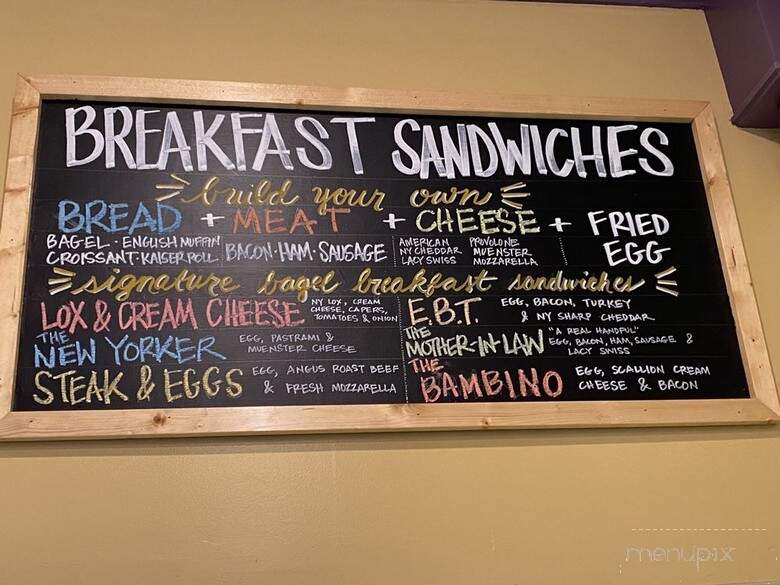 BREAKFAST SANDWICHES
build your own
BREAD + MEAT + CHEESE + FRIED EGG
BAGEL · ENGLISH MUFFIN
CROISSANT · KAISER ROLL
BACON · HAM · SAUSAGE
AMERICAN
NY CHEDDAR
LACY SWISS
PROVOLONE
MUENSTER
MOZZARELLA
signature bagel breakfast sandwiches
LOX & CREAM CHEESE
NY LOX, CREAM
CHEESE, CAPERS,
TOMATOES & ONION
THE
NEW YORKER
EGG, PASTRAMI &
MUENSTER CHEESE
STEAK & EGGS
EGG, ANGUS ROAST BEEF
& FRESH MOZZARELLA
E.B.T.
EGG, BACON, TURKEY
& NY SHARP CHEDDAR
THE
MOTHER-IN-LAW
"A REAL HANDFUL"
EGG, BACON, HAM, SAUSAGE &
LACY SWISS
THE
BAMBINO
EGG, SCALLION CREAM
CHEESE & BACON
menupix